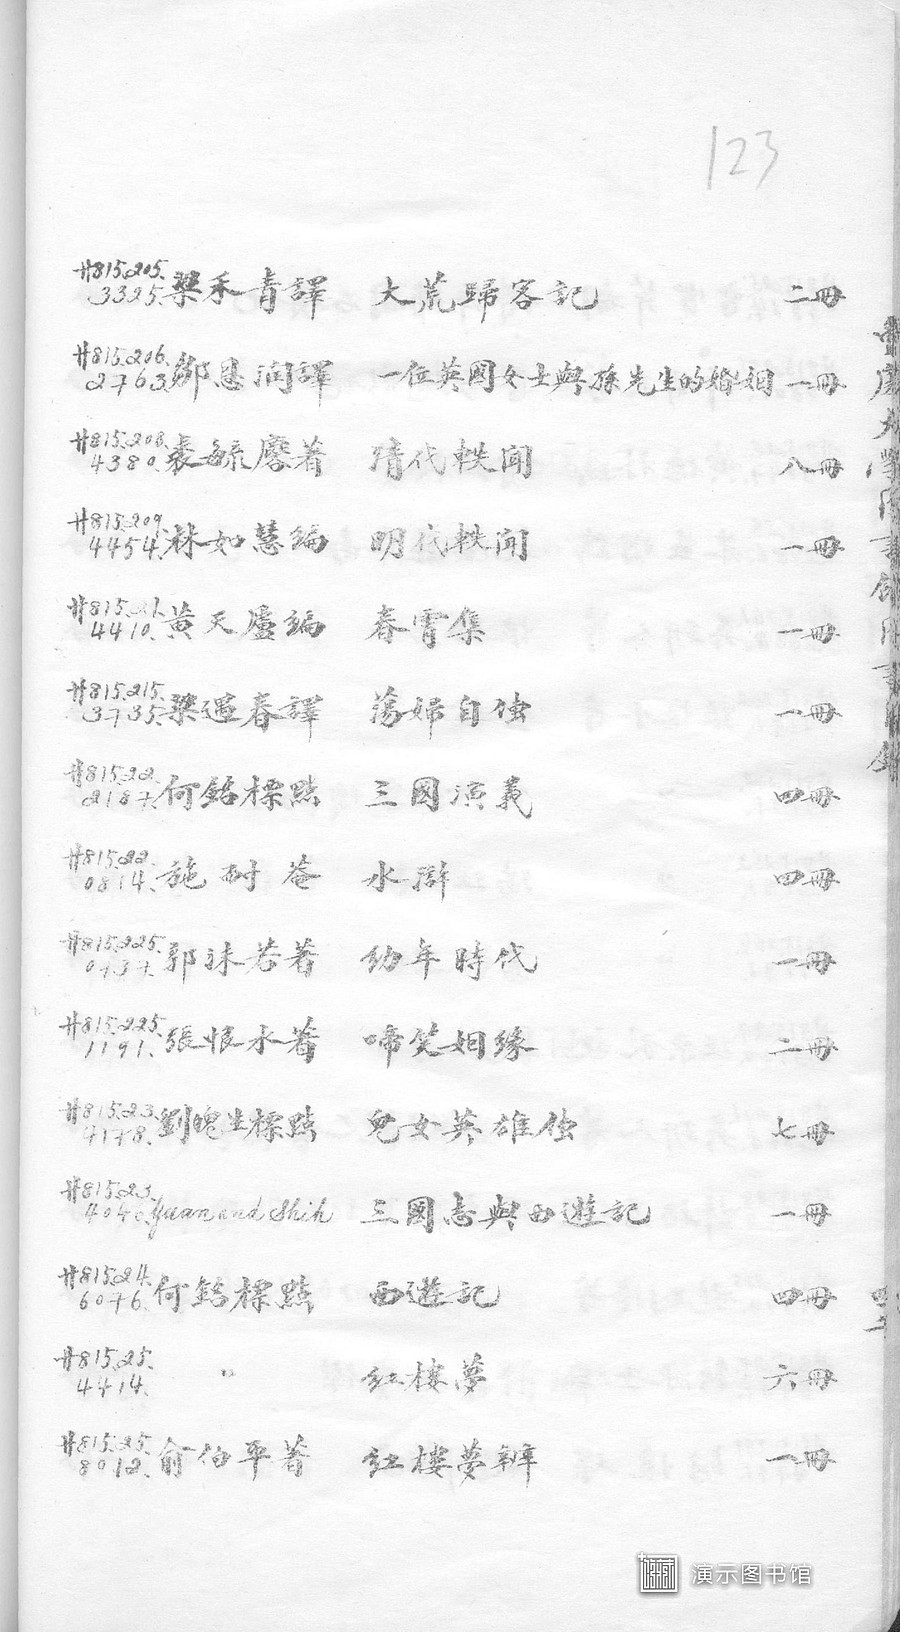 123
廿815.205.
3325. 梁禾青譯 大荒歸客記 二冊
廿815.206.
2763. 鄒恩润譯 一位英國女士與孫先生的婚姻 一冊
廿815.208.
4380. 裘毓麐著 清代軼聞 八冊
廿815.209.
4454. 林如慧編 明代軼聞 一冊
廿815.21.
4410. 黄天廬編 春霄集 一冊
廿815.215.
3735. 梁遇春譯 蕩婦自傳 一冊
廿815.22.
2187. 何銘標點 三國演義 四冊
廿815.22.
0814. 施耐菴 水滸 四冊
廿815.225.
0737. 郭沫若著 幼年時代 一冊
廿815.225.
1191. 張恨水著 啼笑姻缘 二冊
廿815.23.
4178. 劉魄生標點 兒女英雄傳 七冊
廿815.23.
4040. Yuan and Shih 三國志與西遊記 一冊
廿815.24.
6076. 何銘標點 西遊記 四冊
廿815.25.
4414. 〃 红樓夢 六冊
廿815.25.
8012. 俞伯平著 红樓夢辨 一冊
演示图书馆